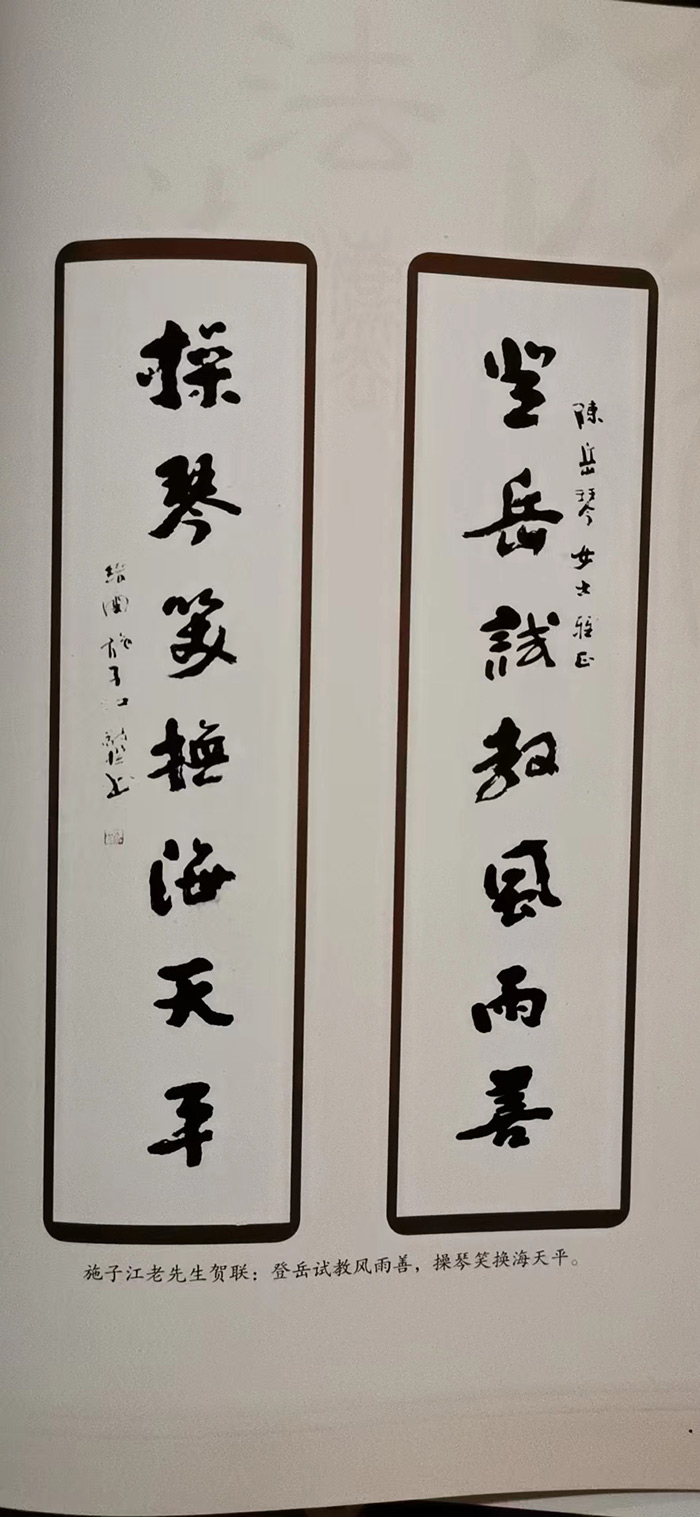 登岳試教風雨善
陳岳琴女士雅正
操琴笑撫海天平
施子江
施子江老先生贺联：登岳试教风雨善，操琴笑换海天平。